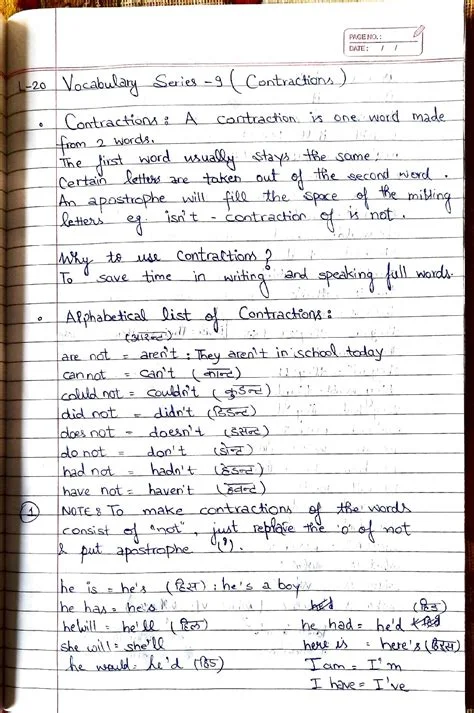 PAGE NO.:
DATE: / /
L-20 Vocabulary Series - 9 ( Contractions )
• Contractions : A contraction is one word made
from 2 words.
The first word usually stays the same.
Certain letters are taken out of the second word.
An apostrophe will fill the space of the missing
letters eg. isn't - contraction of is not.
Why to use contractions ?
To save time in writing and speaking full words.
• Alphabetical list of Contractions :
(आरन्ट)
are not = aren't : They aren't in school today
can not = can't (कान्ट)
could not = couldn't (कुडन्ट)
did not = didn't (डिडन्ट)
does not = doesn't (डसन्ट)
do not = don't (डोन्ट)
had not = hadn't (हैडन्ट)
have not = haven't (हैवन्ट)
1 NOTE : To make contractions of the words
consist of "not", just replace the 'o' of not
& put apostrophe (').
he is = he's (हिस) : he's a boy
he has = he's (हिस)
he will = he'll (हिल) he had = he'd
she will = she'll here is = here's (हिरस)
he would = he'd (हिड) I am = I'm
I have = I've